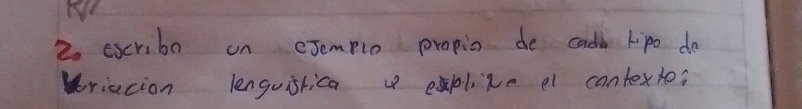 2. escriba un ejemplo propio de cada tipo de
Variacion lenguistica y explique el contexto: